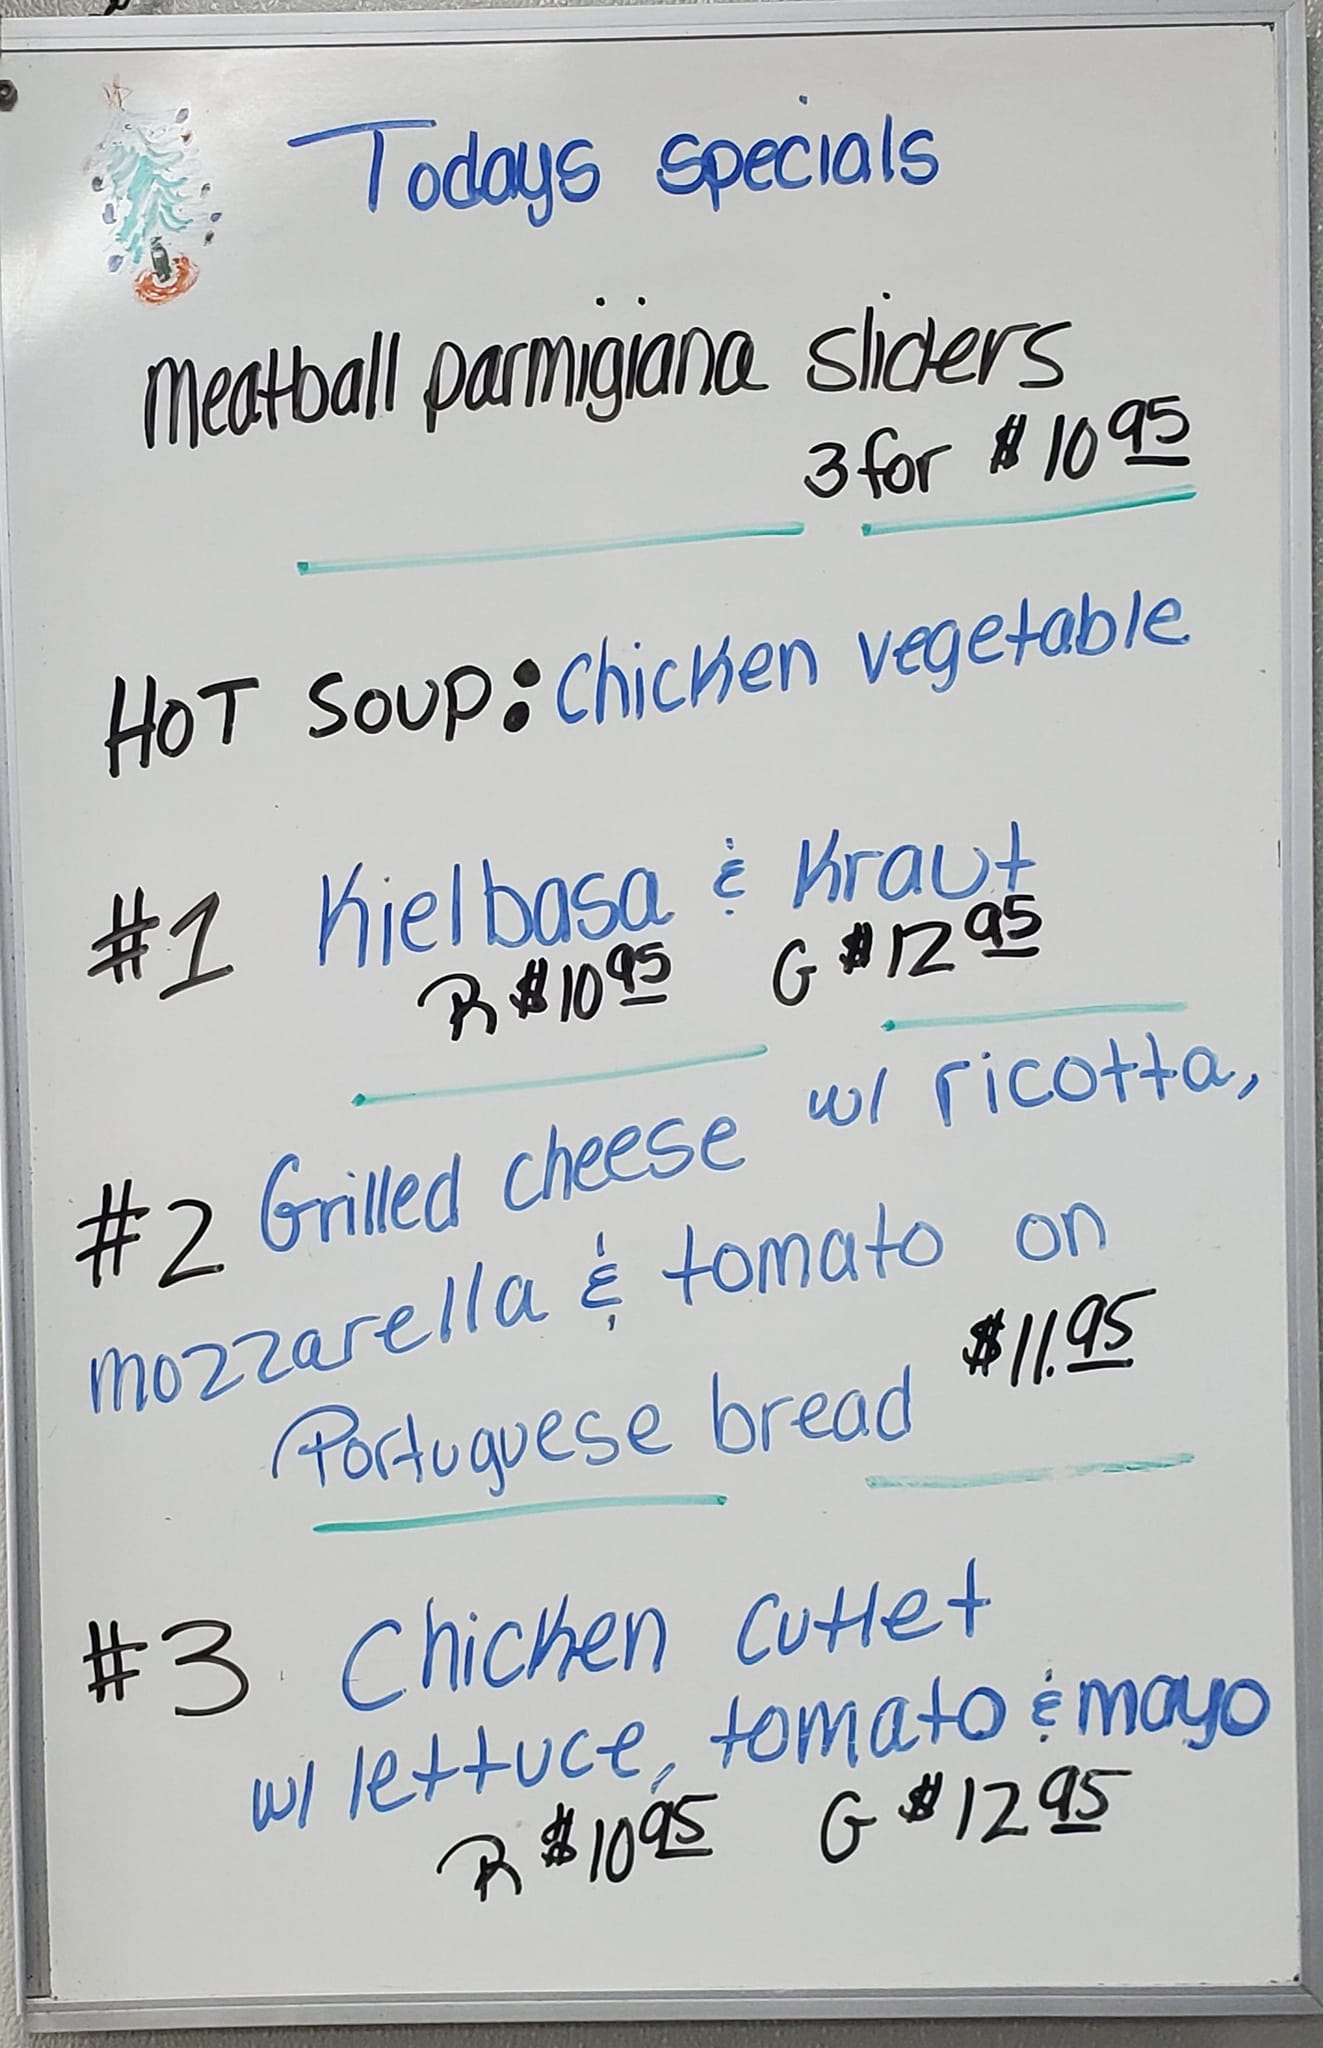 Todays specials
Meatball parmigiana sliders
3 for $10 95
HOT SOUP: Chicken vegetable
#1 Kielbasa & Kraut
R $10 95 G $12 95
#2 Grilled cheese w/ ricotta,
mozzarella & tomato on
Portuguese bread $11.95
#3 Chicken cutlet
w/ lettuce, tomato & mayo
R $10 95 G $12 95